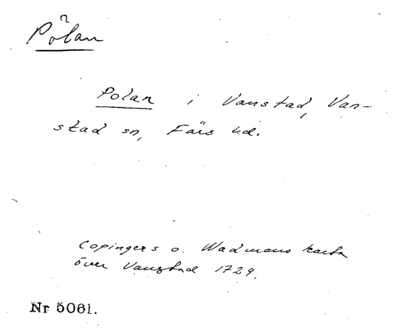 Pölan
Polan i Vanstad, Van-
stad sn, Färs hd.
Copingers o. Wadmans karta
över Vanstad 1729.
Nr 5061.